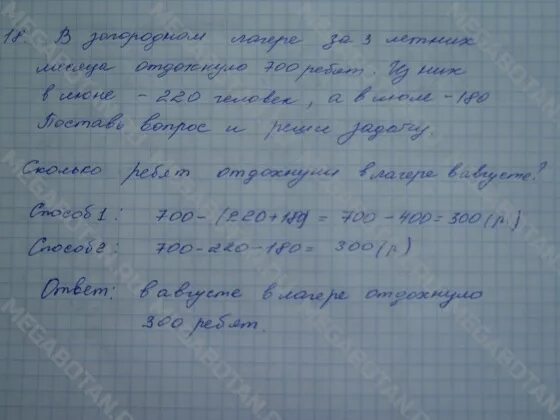 18. В загородном лагере за 3 летних
месяца отдохнуло 700 ребят. Из них
в июне - 220 человек, а в июле - 180
Поставь вопрос и реши задачу.
Сколько ребят отдохнули в лагере в августе?
Способ 1: 700 - (220 + 180) = 700 - 400 = 300 (р)
Способ 2: 700 - 220 - 180 = 300 (р)
Ответ: в августе в лагере отдохнуло
300 ребят.